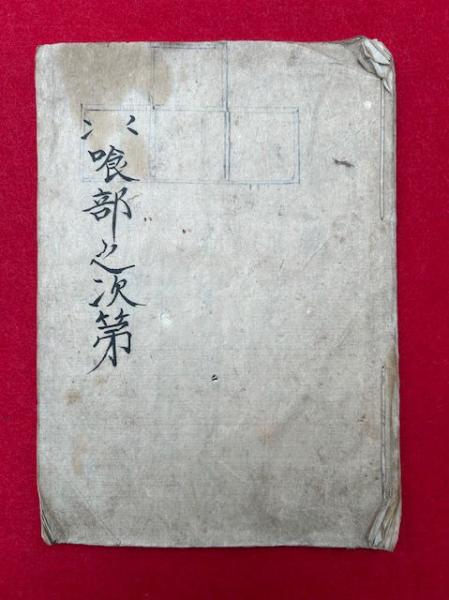 喰部之次第